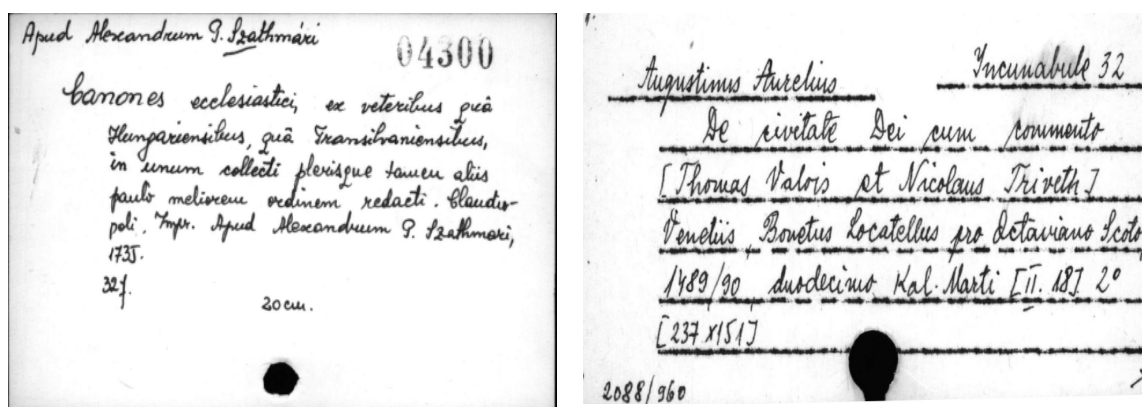 Apud Alexandrum P. Szathmári
04300
Canones ecclesiastici, ex veteribus quà
Hungariensibus, quà Transilvaniensibus,
in unum collecti plerisque tamen aliis
paulò meliorem ordinem redacti. Claudio-
poli, Impr. Apud Alexandrum P. Szathmári,
1735.
32f.
20cm.
Augustinus Aurelius
Incunabule 32
De civitate Dei cum commento
[Thomas Valois et Nicolaus Triveth]
Venetiis, Bonetus Locatellus pro Octaviano Scoto,
1489/90, duodecimo Kal. Marti [II. 18] 2°
[237x151]
2088/960